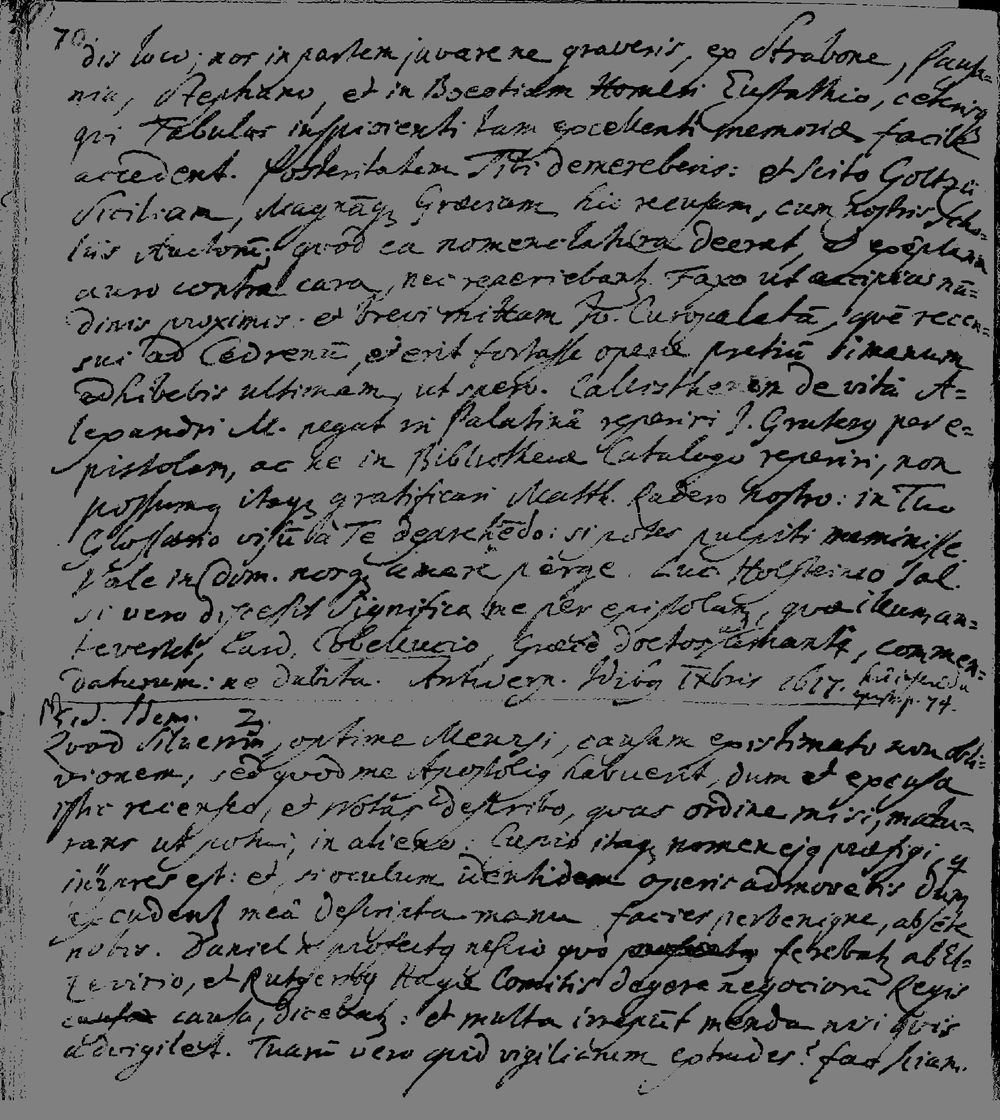 70.
dis loco; nos in partem juvare ne graveris, ex Strabone, Pausa-
nia, Stephano, et in Boeotiam Homeri Eustathio, ceterisq
qui Tabulas inspicienti tam excellenti memoria facile
accedent. Posteritatem Tibi demereberis: et scito Goltzii
Siciliam, Magnāq; Graeciam hic recusam, cum nostris Scho-
liis Auctorū; quod ea nomenclatura deerat, et exēplaria
auro contra cara, nec reperiebant. Faxo ut accipias nū-
dinis proximis. et brevi mittam Jo. Curopalatā, quē recen-
sui ad Cedrenū, et erit fortasse operae pretiū si manum
adhibebis ultimam, ut spero. Callisthenem de vita A-
lexandri M. negat in Palatinâ reperiri J. Gruterus per e-
pistolam, ac ne in Bibliothecae Catalogo reperiri, non
possumq itaq; gratificari Matth. Radero nostro: in Tuo
Glossario visū à Te deprehēdo: si potes pulpiti meminisse
Vale in Dom. nosq; amare perge. Luc. Holsteinio Sal.
si vero discessit significa me per epistolam, quae illum an-
teverstet, Card. Cobelluccio, Graecè doctos amanti, commen-
daturum: ne dubita. Antverp. Idibq IXbris 1617. huic inserēda
epist. p. 74.
Eid. Idem. 2.
Quod siluerim, optime Meursi, causam existimato non obli-
vionem, sed quod me Apostolis habuerit, dum et excusa
isthic recenseo, et Notas describo, quas ordine misi, matu-
rans ut potui, in alieno. Cupio itaq; nomen ejq praefigi, q
interpres est: et si oculum identidem operis admovetis dum
excudent meâ descripta manu facies perbenigne, absēte
nobis. Daniel n profectq nescio quo ferebat ab El-
zevirio, et Rutgersiq Hagae Comitis degere negociorū Regis
causa, dicebat: et multa irrepūt menda nisi quis
advigilet. Tuarū vero quid vigiliarum extrudes? fac sciam.